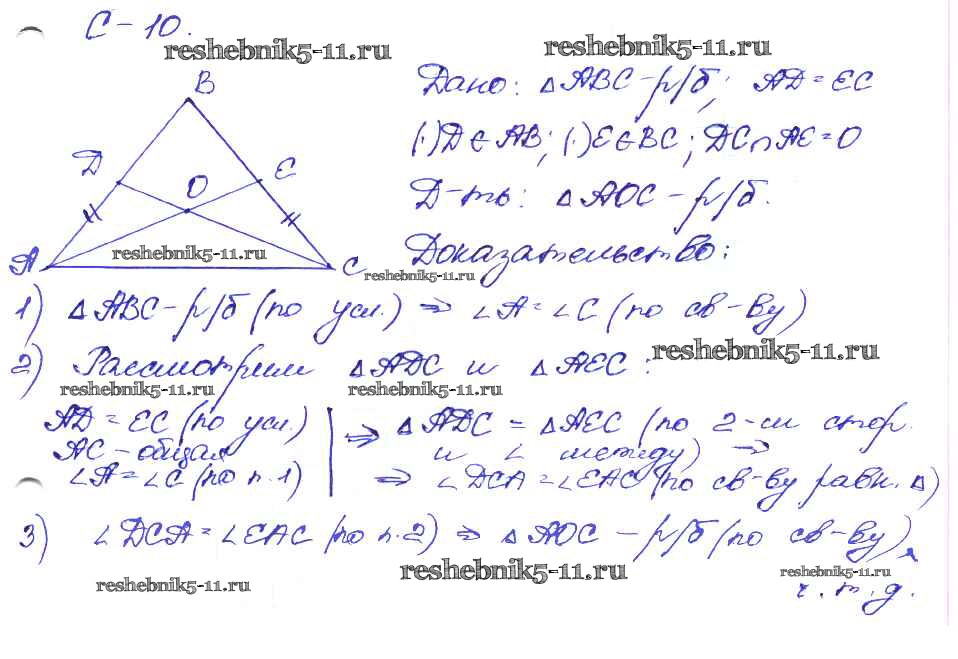 С-10.
reshebnik5-11.ru
reshebnik5-11.ru
B
D
O
E
A
C
reshebnik5-11.ru
Дано: △ABC-р/б; AD=EC
(·)D∈AB; (·)E∈BC; DC∩AE=O
Д-ть: △AOC-р/б.
Доказательство:
reshebnik5-11.ru
1) △ABC-р/б (по усл.) ⇒ ∠A=∠C (по св-ву)
reshebnik5-11.ru
2) Рассмотрим △ADC и △AEC:
reshebnik5-11.ru
reshebnik5-11.ru
AD=EC (по усл.)
AC-общая
∠A=∠C (по п.1)
⇒ △ADC = △AEC (по 2-м стор.
и ∠ между) ⇒
⇒ ∠DCA=∠EAC (по св-ву равн. △)
3) ∠DCA=∠EAC (по п.2) ⇒ △AOC-р/б (по св-ву),
reshebnik5-11.ru
reshebnik5-11.ru
reshebnik5-11.ru
ч.т.д.